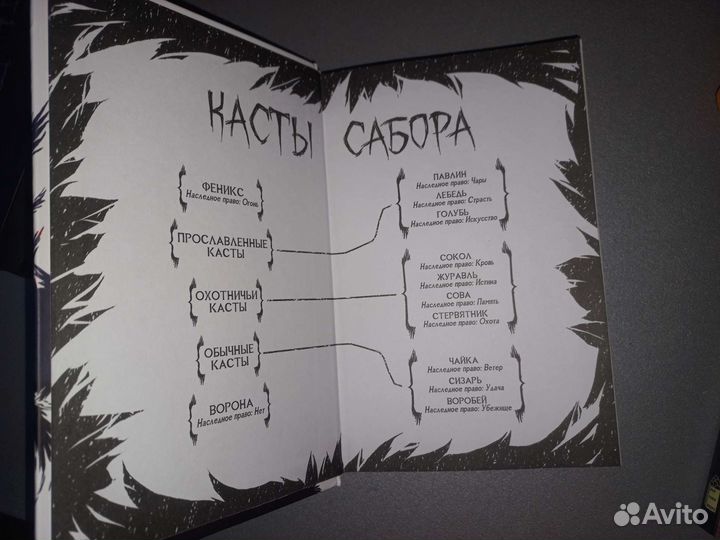 КАСТЫ САБОРА
ФЕНИКС
Наследное право: Огонь
ПРОСЛАВЛЕННЫЕ
КАСТЫ
ОХОТНИЧЬИ
КАСТЫ
ОБЫЧНЫЕ
КАСТЫ
ВОРОНА
Наследное право: Нет
ПАВЛИН
Наследное право: Чары
ЛЕБЕДЬ
Наследное право: Страсть
ГОЛУБЬ
Наследное право: Искусство
СОКОЛ
Наследное право: Кровь
ЖУРАВЛЬ
Наследное право: Истина
СОВА
Наследное право: Память
СТЕРВЯТНИК
Наследное право: Охота
ЧАЙКА
Наследное право: Ветер
СИЗАРЬ
Наследное право: Удача
ВОРОБЕЙ
Наследное право: Убежище
Avito